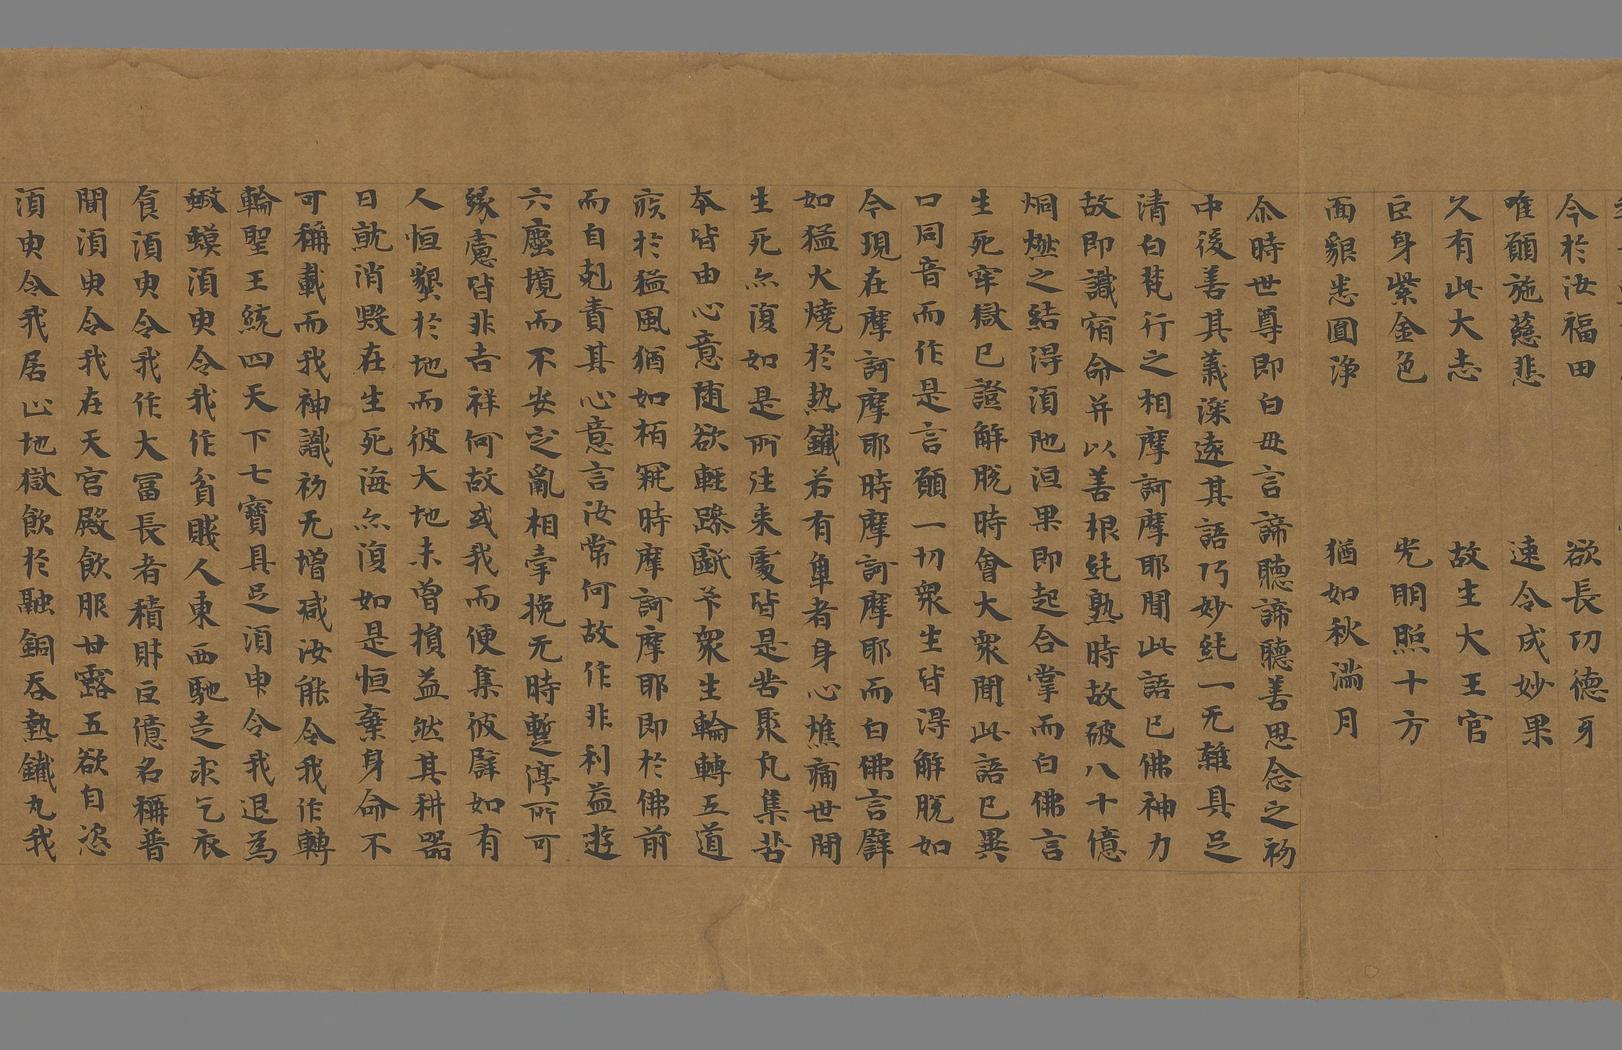 今於汝福田　欲長功德牙
唯願施慈悲　速令成妙果
久有此大志　故生大王宮
巨身紫金色　光明照十方
面貌悉圓淨　猶如秋滿月
尒時世尊即白母言諦聽諦聽善思念之初
中後善其義深遠其語巧妙純一无雜具足
清白梵行之相摩訶摩耶聞此語已佛神力
故即識宿命并以善根純熟時故破八十億
烔燃之結得湏陁洹果即起合掌而白佛言
生死牢獄已證解脫時會大衆聞此語已異
口同音而作是言願一切衆生皆得解脫如
今現在摩訶摩耶時摩訶摩耶而白佛言譬
如猛火燒於熱鐵若有者身心燋痛世間
生死亦復如是所往來處皆是苦聚凡集苦
本皆由心意隨欲輕躁戯弄衆生輪轉五道
疾於猛風猶如拍毱時摩訶摩耶即於佛前
而自剋責其心意言汝常何故作非利益遊
六塵境而不安定亂相牽挽无時暫停所可
緣慮皆非吉祥何故或我而便集彼譬如有
人恒墾於地而彼大地未曾損益然其耕器
日就消毀在生死海亦復如是恒棄身命不
可稱載而我神識初无增減汝能令我作轉
輪聖王統四天下七寶具足湏臾令我退為
蝦蟇湏臾令我作貧賤人東西馳走求乞衣
食湏臾令我作大富長者積財巨億名稱普
聞湏臾令我在天宮殿飲服甘露五欲自恣
湏臾令我居山地獄飲於融銅吞熱鐵丸我